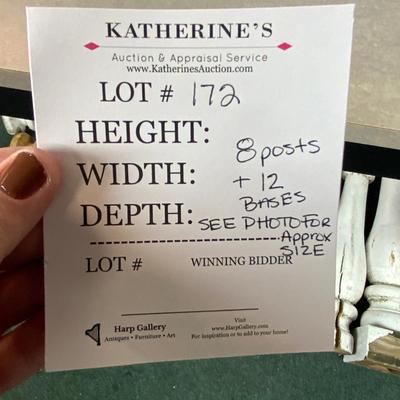 KATHERINE'S
Auction & Appraisal Service
www.KatherinesAuction.com
LOT # 172
HEIGHT:
WIDTH:
DEPTH:
8 posts
+ 12
BASES
SEE PHOTO FOR
Approx
SIZE
LOT #
WINNING BIDDER
Harp Gallery
Antiques • Furniture • Art
Visit
www.HarpGallery.com
For inspiration or to add to your home!